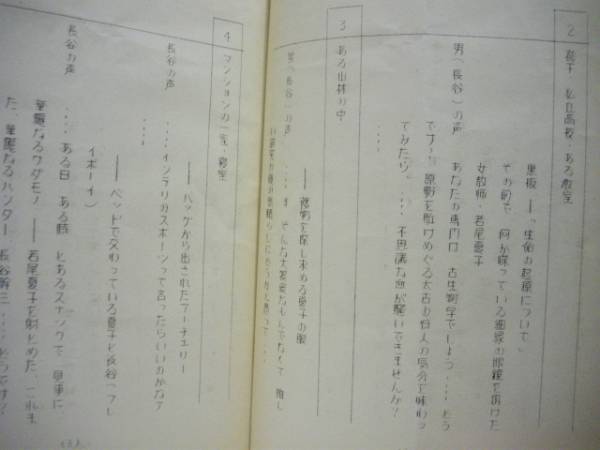 2 都下・私立高校・ある教室
黒板——「生命の起源について」
その前で、何か喋っている細縁の眼鏡を掛けた
女教師・若尾夏子
男(長谷)の声 あなたの専門は 古生物学でしょう....どう
です? 原野を駈けめぐる太古の狩人の気分を味わっ
てみたら。....不思議な血が騒いできませんか?
....
3 ある山林の中
—— 獲物を探し求める夏子の眼
男(長谷)の声 .... そんな大袈裟なもんでなくて
....
4 マンションの一室・寝室
—— バッグから出されたアーチェリー
長谷の声 .... インテリのスポーツって言ったらいいのかな?
....
—— ベッドで交わっている夏子と長谷(プレ
イボーイ)
長谷の声 .... ある日 ある時 とあるスナックで 見事に、
華麗なるケダモノ、—— 若尾夏子を射とめた、これま
た、華麗なるハンター 長谷 三....どうです?